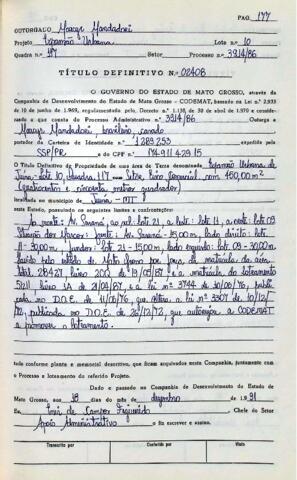 PAG. 177
OUTORGADO Moacyr Mondadori
Projeto Expansão Urbana Lote n.o 10
Quadra n.o 117 Setor Processo n.o 3914/86
TÍTULO DEFINITIVO N.o 02408
O GOVERNO DO ESTADO DE MATO GROSSO, através da
Companhia de Desenvolvimento do Estado de Mato Grosso - CODEMAT, baseado na Lei n.o 2.933
10 de junho de 1969, regulamentada pelo Decreto n.o 1.138, de 30 de abril de 1970 e considerando
o que consta do Processo Administrativo n.o 3914/86 Outorga a
Moacyr Mondadori brasileiro, casado
portador da Carteira de Identidade n.o 1.289.253 expedida pela
SSP/PR e do CPF n.o 174.911.429-15
O Título Definitivo de Propriedade de uma área de Terra denominada Expansão Urbana de
Juína - Lote 10, Quadra 117 com 450,00 m²
(Quatrocentos e cinquenta metros quadrados)
localizada no município de Juína - MT
neste Estado, possuindo os seguintes limites e confrontações:
ao norte: Av. Paraná, ao sul: lote 21, a leste: lote 11, a oeste: lote 09
15,00m, lado direito: lote
11 - 30,00m, fundos: lote 21 - 15,00m, lado esquerdo: lote 09 - 30,00m
e a matrícula do loteamento
21/04/87 e a Lei nº 3744 de 10/06/76, publi
cada no D.O.E. de 11/06/76, que altera a lei nº 3307 de 10/12/
72, publicada no D.O.E. de 26/12/72, que autoriza a CODEMAT
a promover o loteamento.
tudo conforme planta e memorial descritivo, que ficam arquivados nesta Companhia, juntamente com
o Processo e loteamento do referido Projeto.
Dado e passado na Companhia de Desenvolvimento do Estado de
Mato Grosso, aos 18 dias do mês de dezembro de 1991
Eu Inês de Campos Figueiredo Chefe do Setor
Apoio Administrativo o fiz escrever e assino.
Transcrito por Conferido por Visto